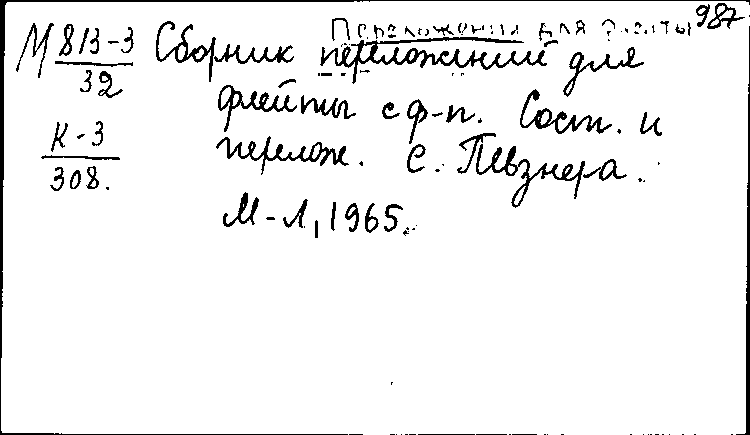 987
Переложения для флейты
М 813-3 Сборник переложений для
32
флейты с ф-п. Сост. и
К-3
перелож. С. Певзнера.
308.
М-Л, 1965.